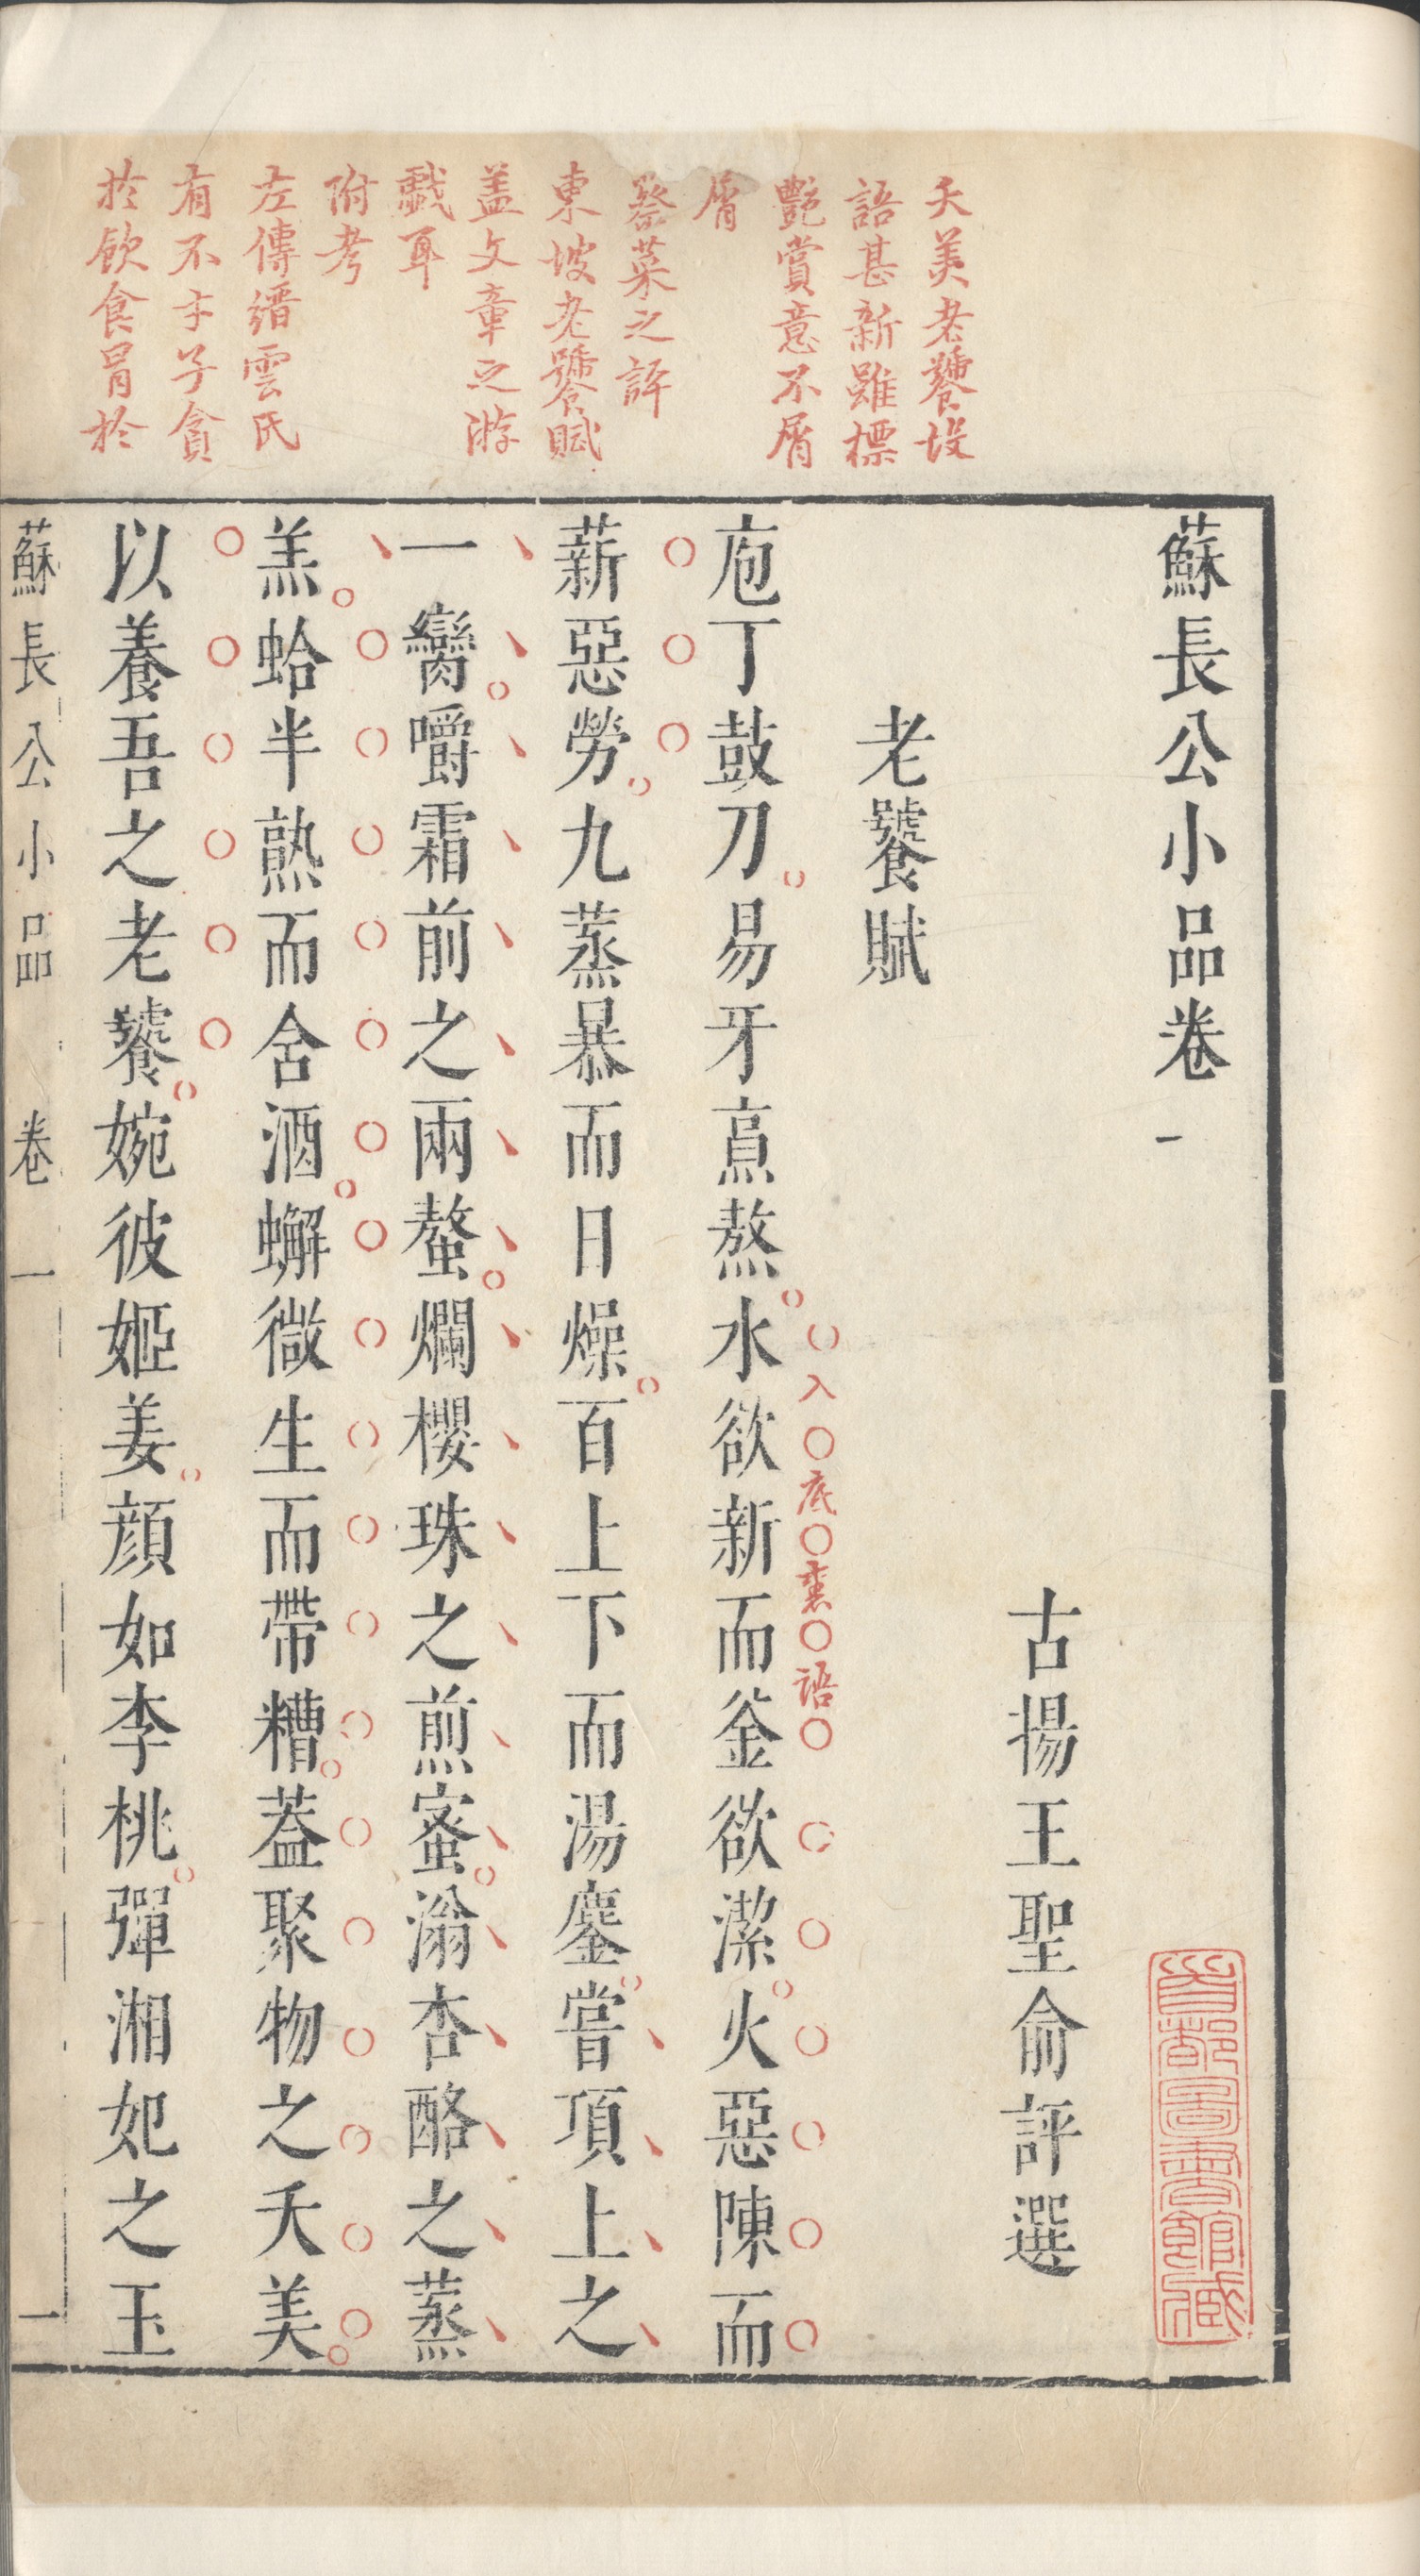 蘇長公小品卷一
古揚王聖俞評選
老饕賦
夭美老饕設
語甚新雖標
艷賞意不屑
屑
蔡菜之評
東坡老饕賦
盖文章之游
戲耳
附考
左傳縉雲氏
有不才子貪
於飲食冒於
入底裏語
庖丁鼓刀易牙烹熬水欲新而釜欲潔火惡陳而
薪惡勞九蒸暴而日燥百上下而湯鏖嘗項上之
一臠嚼霜前之兩螯爛櫻珠之煎蜜滃杏酪之蒸
羔蛤半熟而含酒蠏微生而帶糟蓋聚物之夭美
以養吾之老饕婉彼姬姜顏如李桃彈湘妃之玉
蘇長公小品 卷一 一
首都圖書館藏